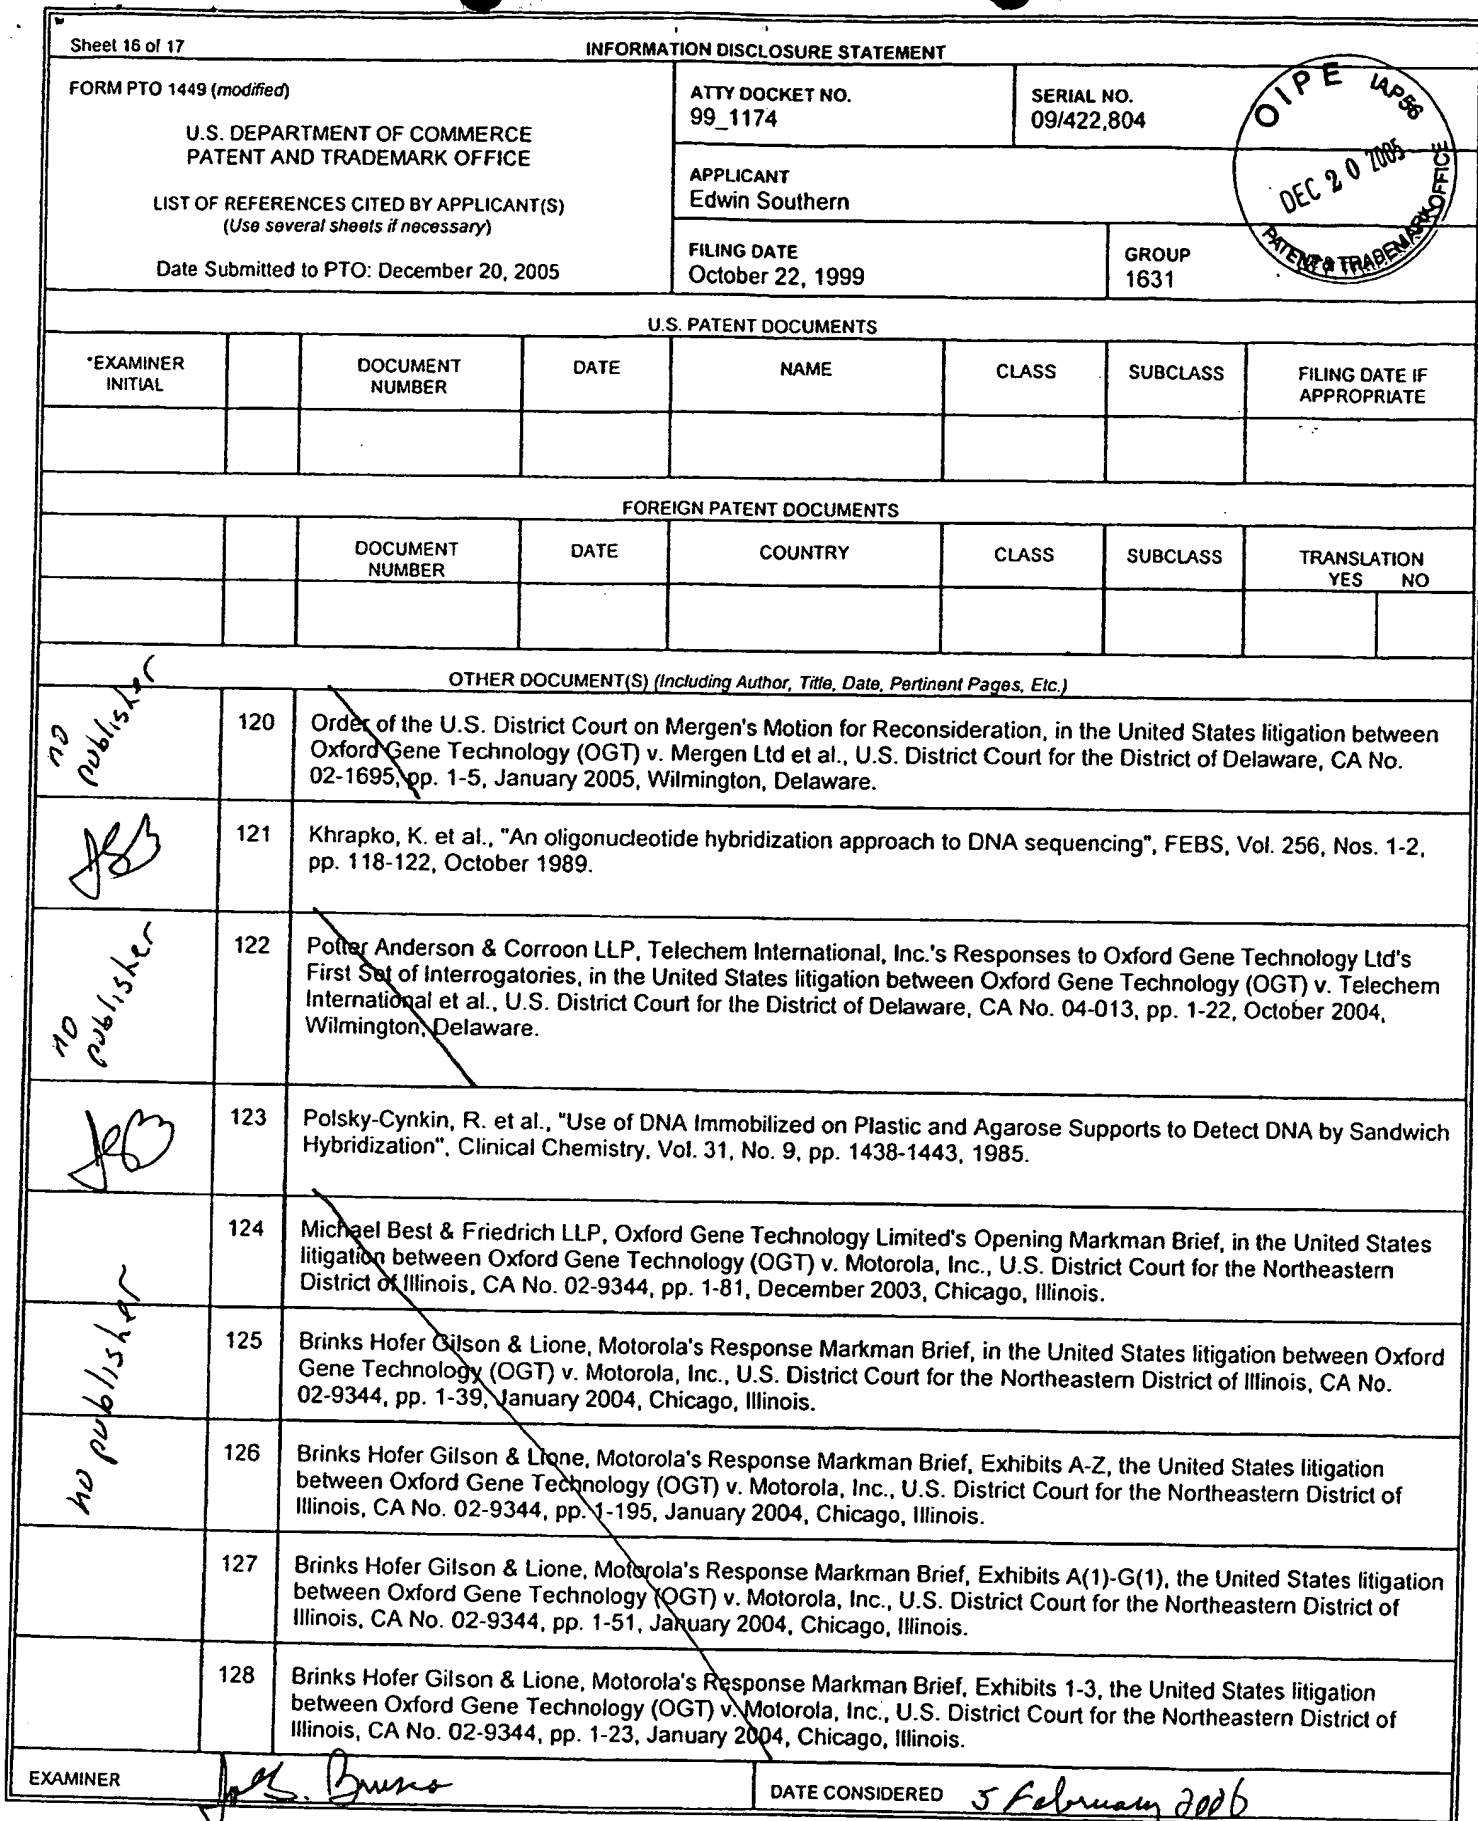 Sheet 16 of 17
INFORMATION DISCLOSURE STATEMENT
FORM PTO 1449 (modified)
U.S. DEPARTMENT OF COMMERCE
PATENT AND TRADEMARK OFFICE
LIST OF REFERENCES CITED BY APPLICANT(S)
(Use several sheets if necessary)
Date Submitted to PTO: December 20, 2005
ATTY DOCKET NO.
99_1174
SERIAL NO.
09/422,804
APPLICANT
Edwin Southern
FILING DATE
October 22, 1999
GROUP
1631
OIPE IAP56
DEC 20 2005
PATENT & TRADEMARK OFFICE
U.S. PATENT DOCUMENTS
*EXAMINER INITIAL
DOCUMENT NUMBER
DATE
NAME
CLASS
SUBCLASS
FILING DATE IF APPROPRIATE
FOREIGN PATENT DOCUMENTS
DOCUMENT NUMBER
DATE
COUNTRY
CLASS
SUBCLASS
TRANSLATION
YES NO
OTHER DOCUMENT(S) (Including Author, Title, Date, Pertinent Pages, Etc.)
no publisher
120
Order of the U.S. District Court on Mergen's Motion for Reconsideration, in the United States litigation between
Oxford Gene Technology (OGT) v. Mergen Ltd et al., U.S. District Court for the District of Delaware, CA No.
02-1695, pp. 1-5, January 2005, Wilmington, Delaware.
121
Khrapko, K. et al., "An oligonucleotide hybridization approach to DNA sequencing", FEBS, Vol. 256, Nos. 1-2,
pp. 118-122, October 1989.
no publisher
122
Potter Anderson & Corroon LLP, Telechem International, Inc.'s Responses to Oxford Gene Technology Ltd's
First Set of Interrogatories, in the United States litigation between Oxford Gene Technology (OGT) v. Telechem
International et al., U.S. District Court for the District of Delaware, CA No. 04-013, pp. 1-22, October 2004,
Wilmington, Delaware.
123
Polsky-Cynkin, R. et al., "Use of DNA Immobilized on Plastic and Agarose Supports to Detect DNA by Sandwich
Hybridization", Clinical Chemistry, Vol. 31, No. 9, pp. 1438-1443, 1985.
no publisher
124
Michael Best & Friedrich LLP, Oxford Gene Technology Limited's Opening Markman Brief, in the United States
litigation between Oxford Gene Technology (OGT) v. Motorola, Inc., U.S. District Court for the Northeastern
District of Illinois, CA No. 02-9344, pp. 1-81, December 2003, Chicago, Illinois.
125
Brinks Hofer Gilson & Lione, Motorola's Response Markman Brief, in the United States litigation between Oxford
Gene Technology (OGT) v. Motorola, Inc., U.S. District Court for the Northeastern District of Illinois, CA No.
02-9344, pp. 1-39, January 2004, Chicago, Illinois.
126
Brinks Hofer Gilson & Lione, Motorola's Response Markman Brief, Exhibits A-Z, the United States litigation
between Oxford Gene Technology (OGT) v. Motorola, Inc., U.S. District Court for the Northeastern District of
Illinois, CA No. 02-9344, pp. 1-195, January 2004, Chicago, Illinois.
127
Brinks Hofer Gilson & Lione, Motorola's Response Markman Brief, Exhibits A(1)-G(1), the United States litigation
between Oxford Gene Technology (OGT) v. Motorola, Inc., U.S. District Court for the Northeastern District of
Illinois, CA No. 02-9344, pp. 1-51, January 2004, Chicago, Illinois.
128
Brinks Hofer Gilson & Lione, Motorola's Response Markman Brief, Exhibits 1-3, the United States litigation
between Oxford Gene Technology (OGT) v. Motorola, Inc., U.S. District Court for the Northeastern District of
Illinois, CA No. 02-9344, pp. 1-23, January 2004, Chicago, Illinois.
EXAMINER
DATE CONSIDERED 5 February 2006